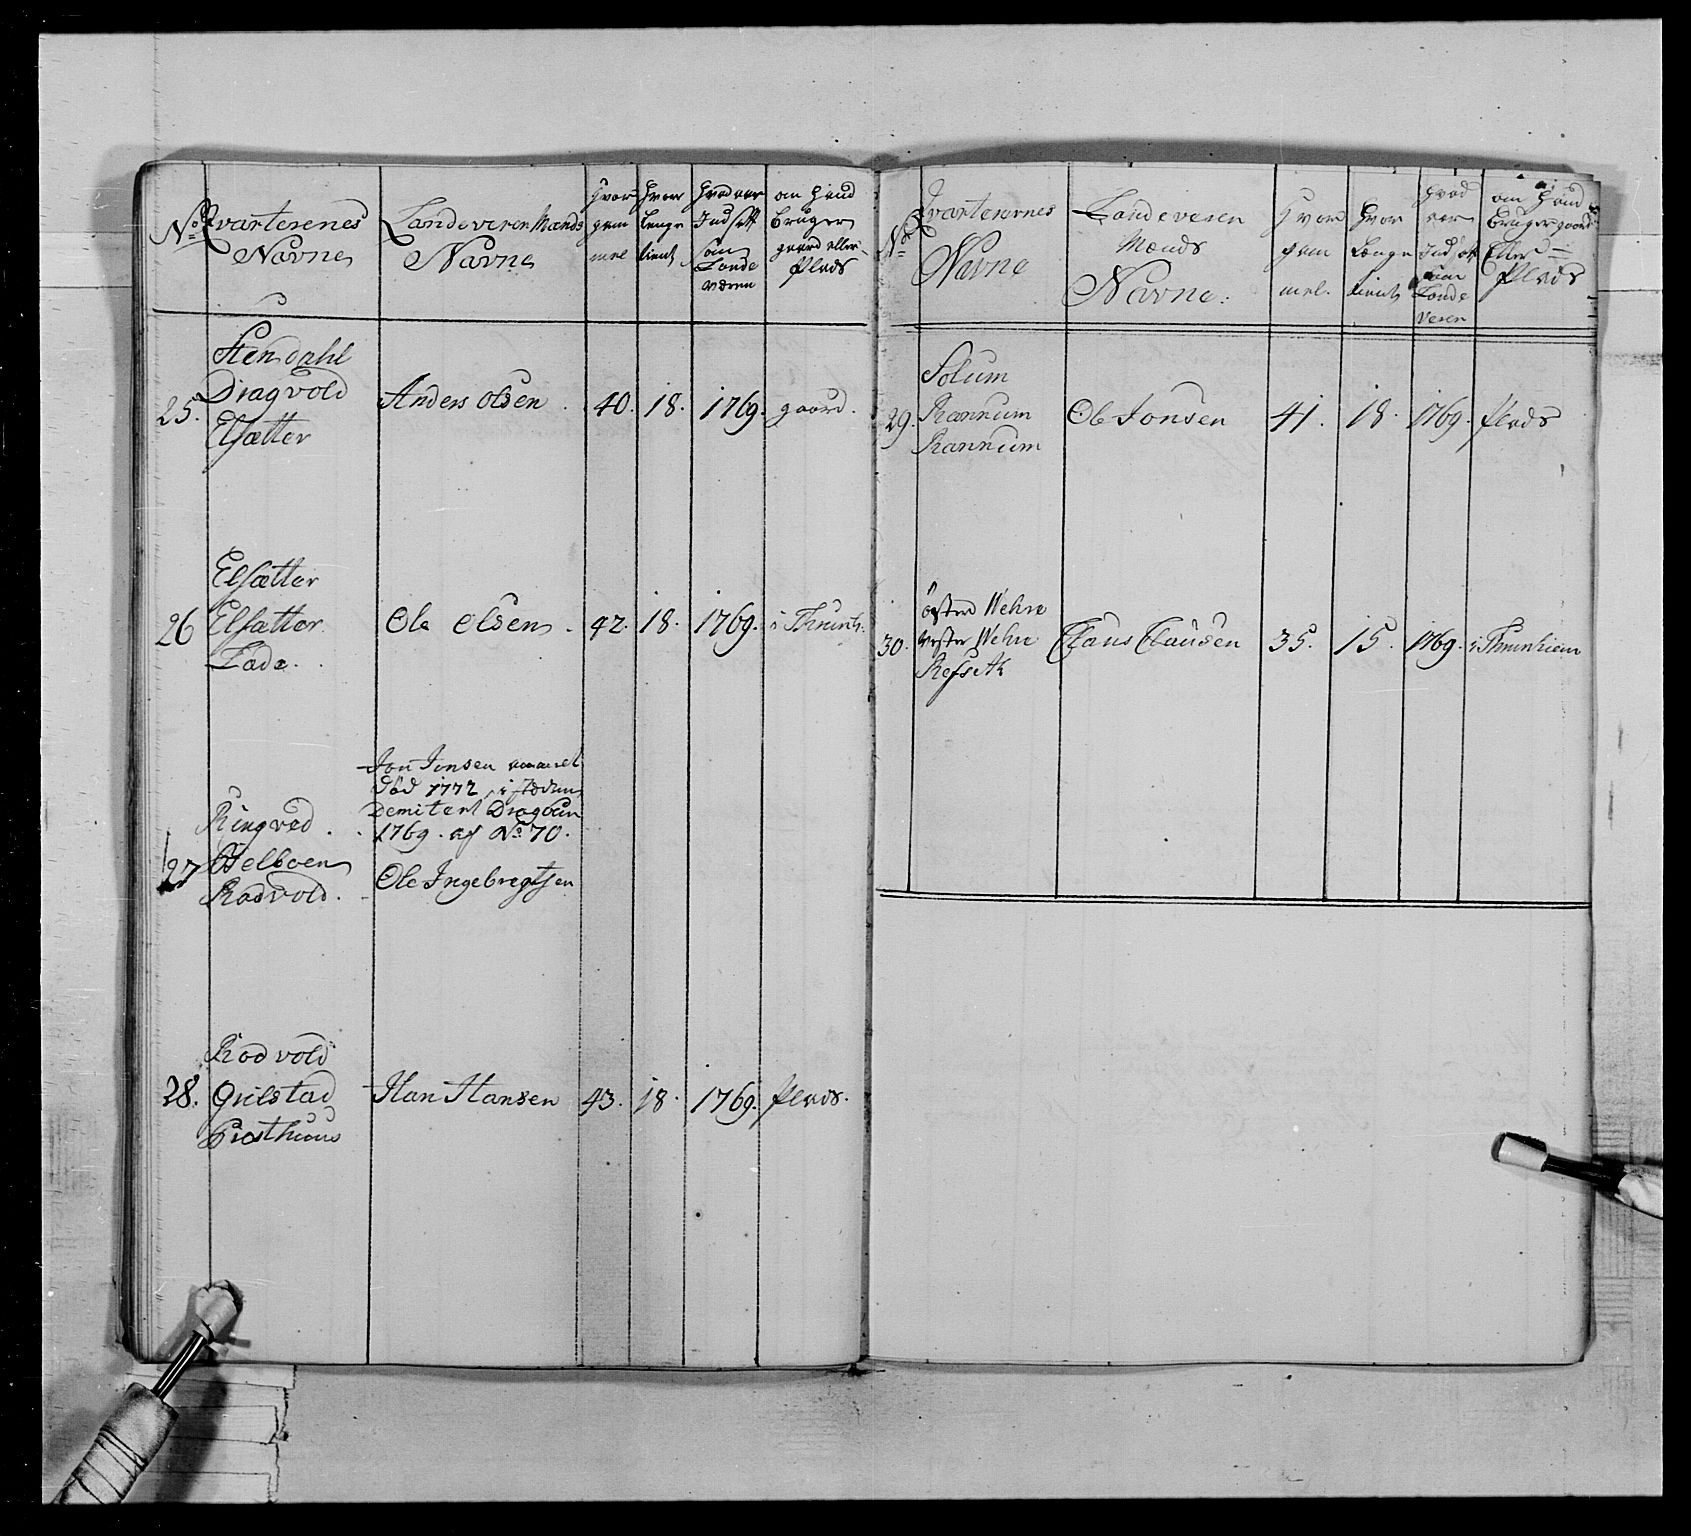 No
Qvarterenes
Navne
Landeveren Mænds
Navne
Hvor
gam
mel
Hvor
Lenge
tient
Hvad aar
Ind satt
som
Lande
væren
om Hand
bruger
gaard eller
Plads
25.
Stendahl
Dragvold
Elsætter
Anders Olsen
40.
18.
1769.
gaard.
26
Elsætter
Elsætter
Lade.
Ole Olsen
42.
18.
1769.
i Thrunh:
27
Ringved.
Belboen
Rodvold.
Jon Jonsen
død 1772, i steden
Demitert Dragoun
1769. af No 70.
Ole Ingebregtsen
28.
Rodvold
Grilstad
Præsthuus
Han Hansen
43.
18.
1769.
Plads.
No
Qvarterernes
Navne
Landeveren
Mænds
Navne:
Hvor
gam
mel.
Hvor
Længe
tient
Hvad
aar
Ind satt
som
Lande
veren
om Hand
bruger gaard
Eller
Plads
29.
Solum
Rannum
Rannum
Ole Jonsen
41.
18.
1769.
Plads
30.
öster Wehre
vester Wehre
Refseth
Claus Clausen
35.
15.
1769.
i Thrunhiem